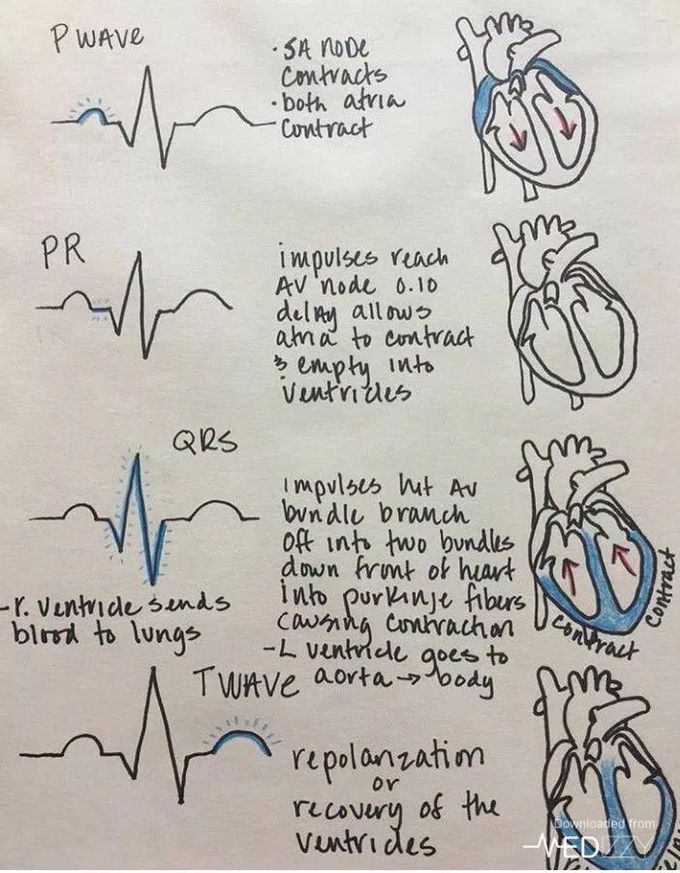 P WAVE
· SA NODE
contracts
· both atria
contract
PR
impulses reach
AV node 0.10
delay allows
atria to contract
& empty into
ventricles
QRS
impulses hit AV
bundle branch
off into two bundles
down front of heart
into purkinje fibers
causing contraction
- L ventricle goes to
aorta → body
- r. ventricle sends
blood to lungs
contract
contract
T WAVE
repolarization
or
recovery of the
ventricles
Downloaded from
MEDIZZY